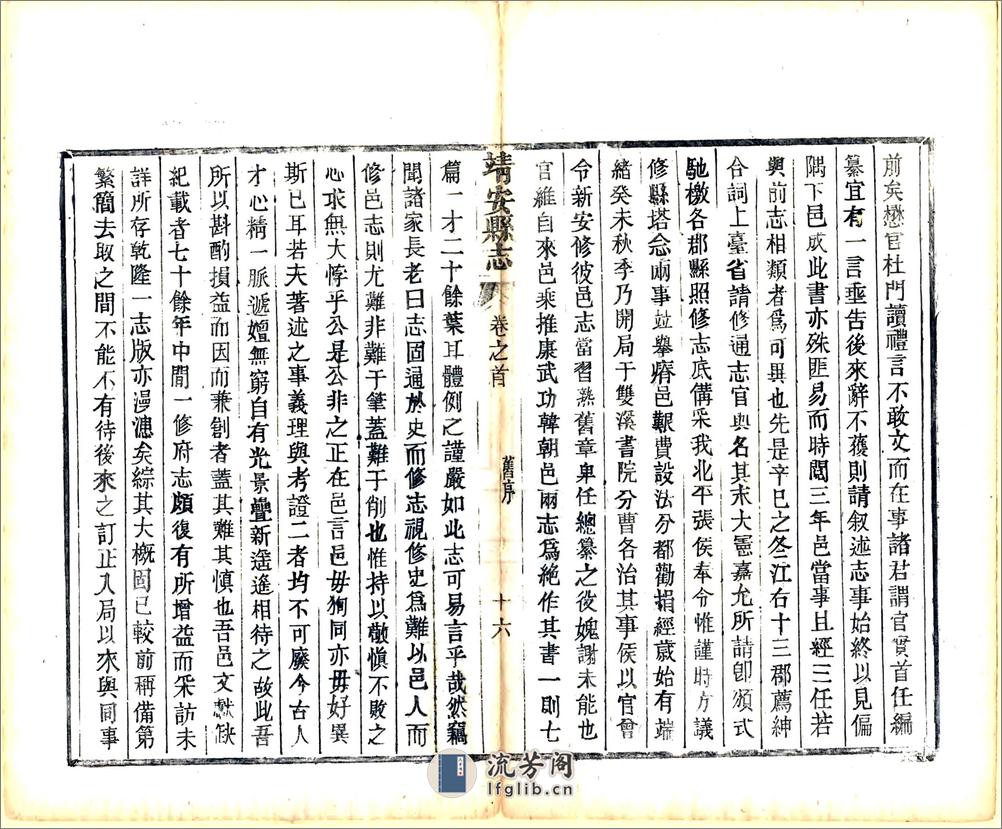 前矣懋官杜門讀禮言不敢文而在事諸君謂官實首任編
纂宜有一言垂告後來辭不獲則請叙述志事始終以見偏
隅下邑成此書亦殊匪易而時閲三年邑當事且經三任若
與前志相類者爲可異也先是辛巳之冬江右十三郡薦紳
合詞上臺省請修通志官與名其末大憲嘉允所請卽頒式
馳檄各郡縣照修志底備采我北平張侯奉令惟謹時方議
修縣塔念兩事竝擧瘠邑艱費設法分都勸捐經歲始有端
緒癸未秋季乃開局于雙溪書院分曹各治其事侯以官曾
令新安修彼邑志當習熟舊章卑任總纂之役媿謝未能也
官維自來邑乘推康武功韓朝邑兩志爲絶作其書一則七
靖安縣志
卷之首
舊序
十六
篇一才二十餘葉耳體例之謹嚴如此志可易言乎哉然竊
聞諸家長老曰志固通於史而修志視修史爲難以邑人而
修邑志則尤難非難于筆蓋難于削也惟持以敬愼不敗之
心求無大悖乎公是公非之正在邑言邑毋狥同亦毋好異
斯已耳若夫著述之事義理與考證二者均不可廢今古人
才心精一脈遞嬗無窮自有光景疊新遥遥相待之故此吾
所以斟酌損益而因而兼創者蓋其難其愼也吾邑文獻缺
紀載者七十餘年中間一修府志頗復有所增益而采訪未
詳所存乾隆一志版亦漫漶矣綜其大槪固已較前稱備第
繁簡去取之間不能不有待後來之訂正入局以來與同事
流芳阁
lfglib.cn